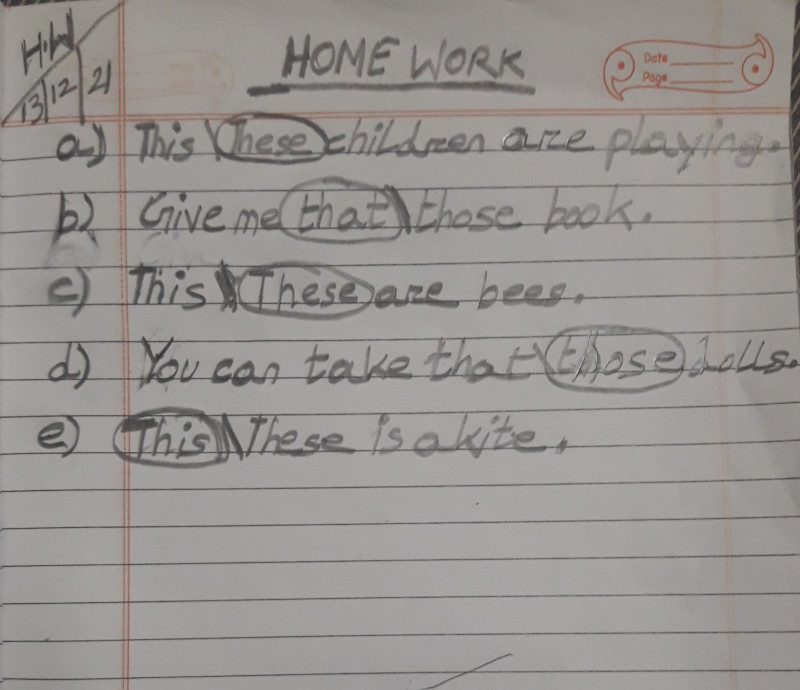 H.W
13/12/21
HOME WORK
Date
Page
a.) This \ These children are playing.
b) Give me that \ those book.
c) This \ These are bees.
d) You can take that \ those dolls.
e) This \ These is a kite.